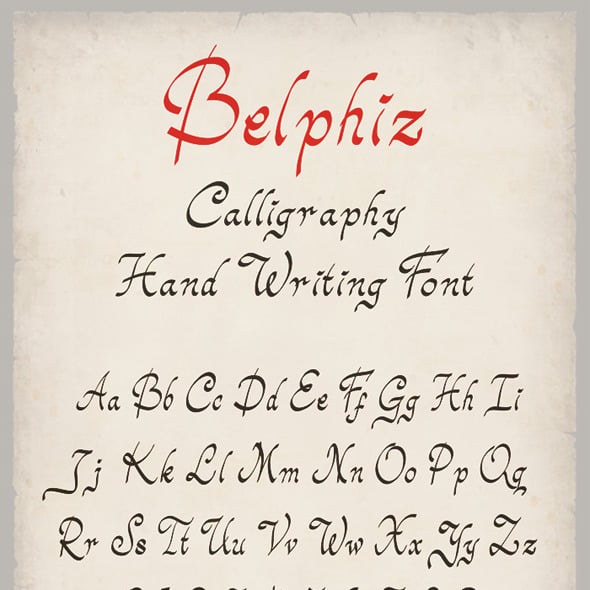 Belphiz
Calligraphy
Hand Writing Font
Aa Bb Cc Dd Ee Ff Gg Hh Ii
Jj Kk Ll Mm Nn Oo Pp Qq
Rr Ss Tt Uu Vv Ww Xx Yy Zz